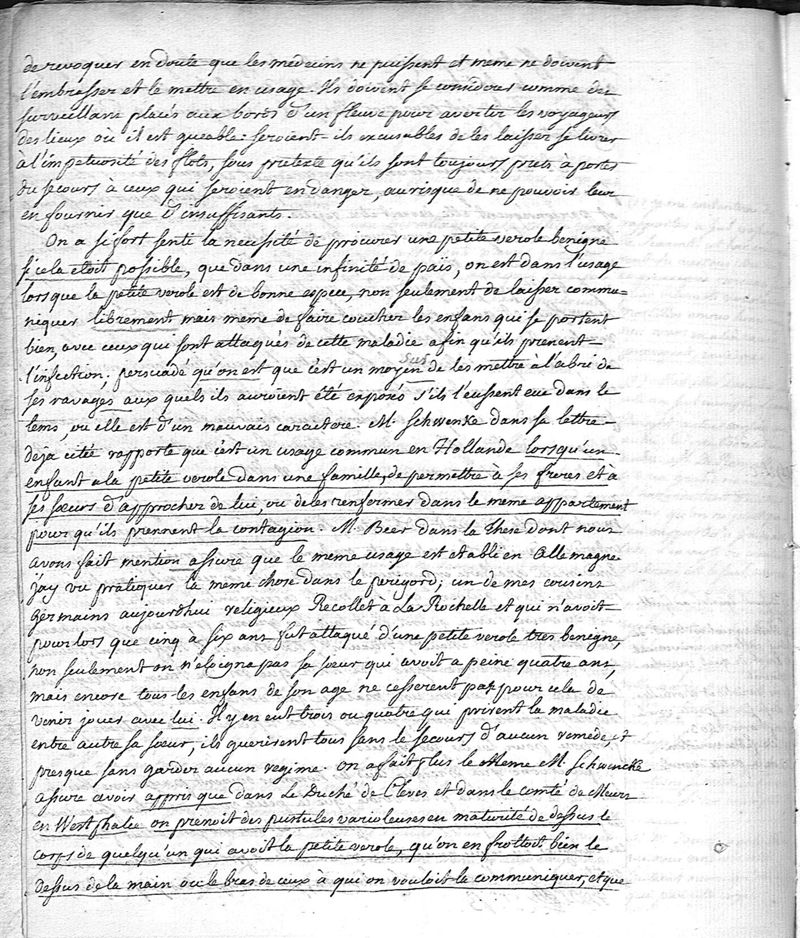 de revoquer en doute que les medecins ne puissent et meme ne doivent
l'embrasser et le mettre en usage. Ils doivent se considerer comme des
surveillans placés aux bords d'un fleuve pour avertir les voyageurs
des lieux où il est gueable : seroient-ils excusables de les laisser se livrer
à l'impetuosité des flots, sous pretexte qu'ils sont toujours prets a porter
du secours à ceux qui seroient en danger, au risque de ne pouvoir leur
en fournir que d'insuffisants.
On a si fort senti la necessité de procurer une petite verole benigne
si cela etoit possible, que dans une infinité de païs, on est dans l'usage
lorsque la petite verole est de bonne espece, non seulement de laisser commu=
niquer librement mais meme de faire coucher les enfans qui se portent
bien, avec ceux qui sont attaqués de cette maladie afin qu'ils prenent
l'infection ; persuadé qu'on est que c'est un moyen sur de les mettre à l'abri de
ses ravages aux quels ils auroient été exposés s'ils l'eussent eue dans le
tems, ou elle est d'un mauvais caractere. M. Schwenke dans sa lettre
deja citée rapporte que c'est un usage commun en Hollande lorsqu'un
enfant a la petite verole dans une famille, de permettre à ses freres et a
ses sœurs d'approcher de lui, ou de les renfermer dans le meme appartement
pour qu'ils prennent la contagion. M. Beer dans la These dont nous
avons fait mention assure que le meme usage est etabli en Allemagne
j'ay vu pratiquer la meme chose dans le perigord ; un de mes cousins
germains aujourdhui religieux Recollet à La Rochelle et qui n'avoit
pour lors que cinq a six ans fut attaqué d'une petite verole tres benigne,
non seulement on n'eloigna pas sa sœur qui avoit a peine quatre ans,
mais encore tous les enfans de son age ne cesserent pas pour cela de
venir jouer avec lui. Il y en eut trois ou quatre qui prirent la maladie
entre autre sa sœur, ils guerirent tous sans le secours d'aucun remede, et
presque sans garder aucun regime. On a fait plus le Meme M. Schwencke
assure avoir appris que dans Le Duché de Cleves et dans le comté de Meurs
en Westphalie on prenoit des pustules varioleuses en maturité de dessus le
corps de quelqu'un qui avoit la petite verole, qu'on en frottoit bien le
dessus de la main ou le bras de ceux à qui on vouloit la communiquer, et que